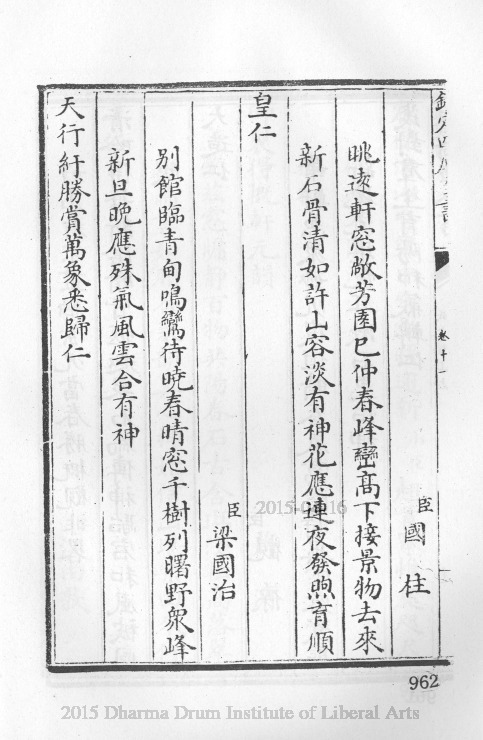 欽定四庫全書
卷十一
臣國柱
眺遠軒窓敞芳園已仲春峰巒高下接景物去來
新石骨清如許山容淡有神花應連夜發煦育順
皇仁
臣梁國治
別館臨青甸鳴鸞待曉春晴窓千樹列曙野衆峰
新旦晚應殊氣風雲合有神
天行紆勝賞萬象悉歸仁
962
2015 Dharma Drum Institute of Liberal Arts